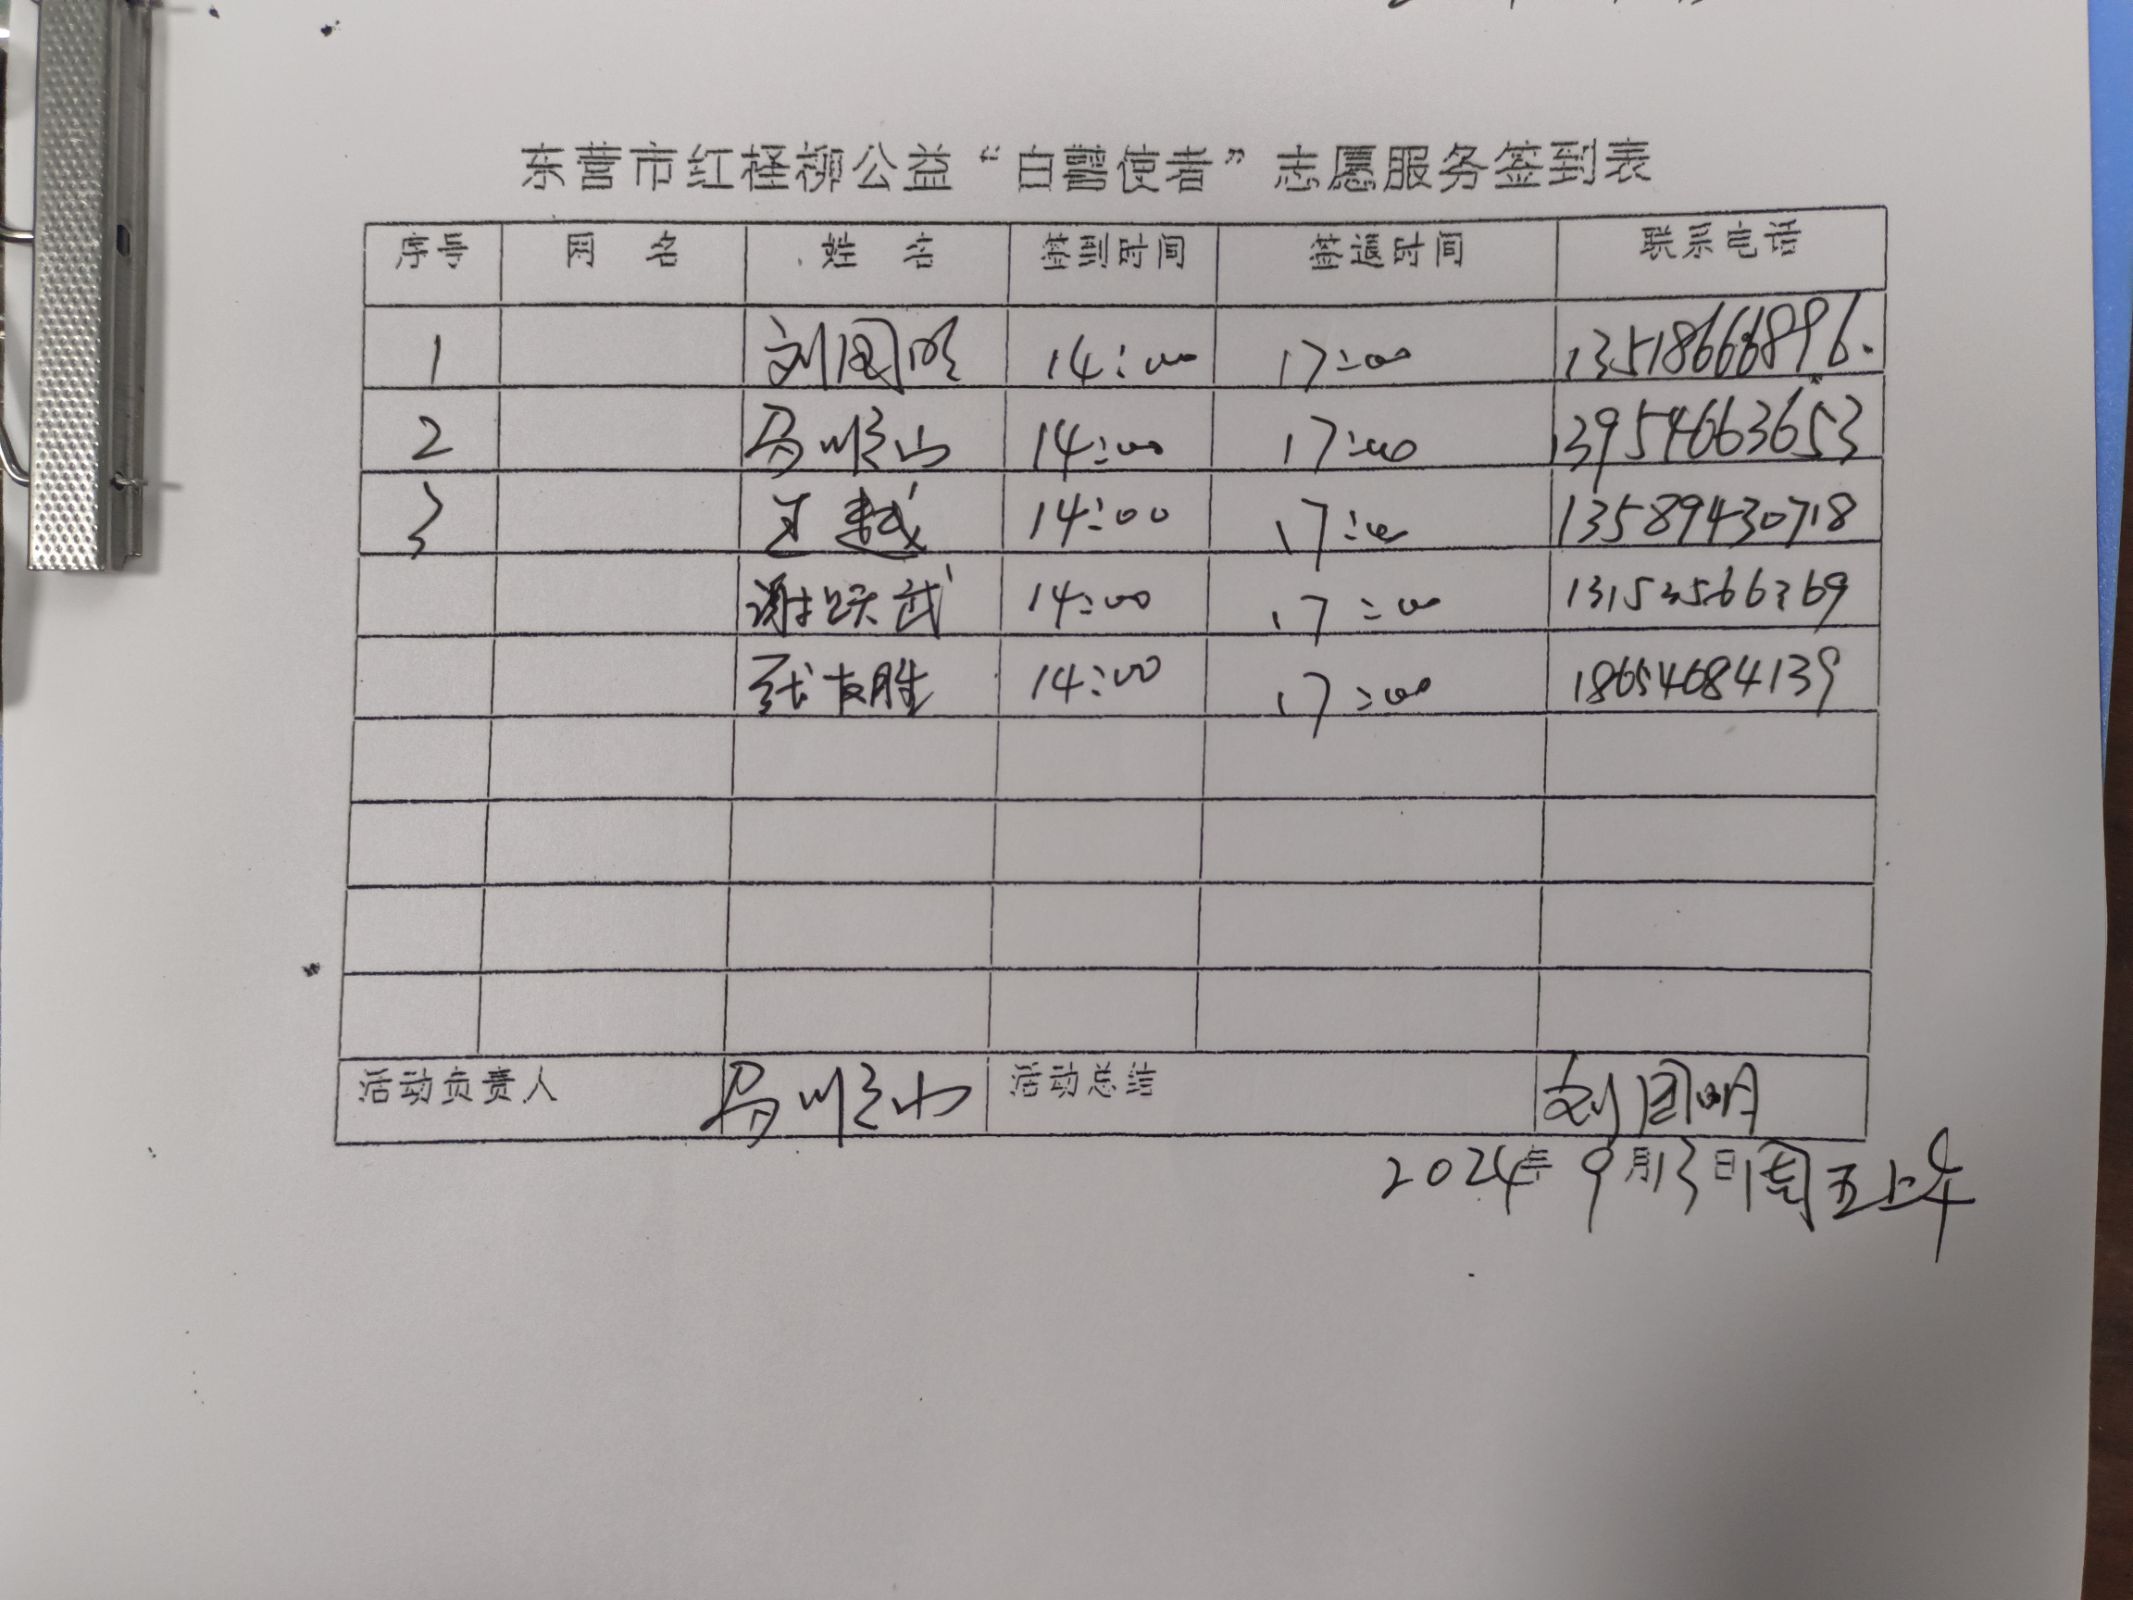 东营市红柽柳公益“白鹭使者”志愿服务签到表
序号 网 名 姓 名 签到时间 签退时间 联系电话
1 刘国明 14:00 17:00 13518666896.
2 马顺山 14:00 17:00 13954663653
3 王越 14:00 17:00 13589430718
谢跃武 14:00 17:00 13153566369
张友胜 14:00 17:00 18654684139
活动负责人 马顺山 活动总结 刘国明
2024年 9月13日 周五上午